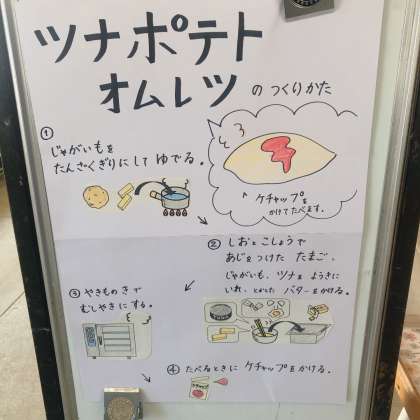 ツナポテト
オムレツ のつくりかた
①
じゃがいもを
たんざくぎりにして ゆでる。
とろ
ケチャップを
かけてたべます。
② しおとこしょうで
あじをつけた たまご、
じゃがいも、ツナを ようきに
いれ、とかした バターをかける。
③ やきものきで
むしやきにする。
④ たべるときに ケチャップをかける。